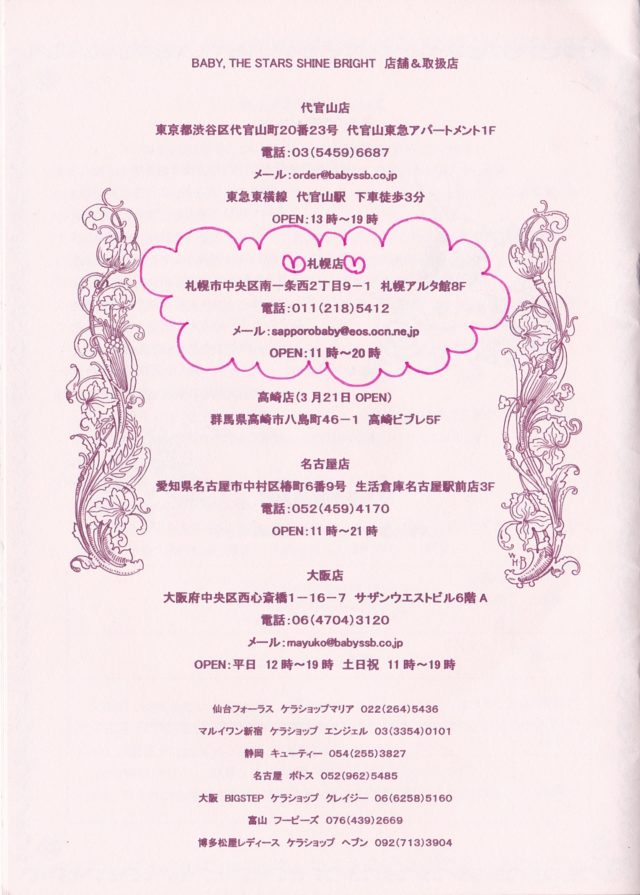 BABY, THE STARS SHINE BRIGHT 店舗＆取扱店
代官山店
東京都渋谷区代官山町20番23号 代官山東急アパートメント1F
電話：03(5459)6687
メール：order@babyssb.co.jp
東急東横線 代官山駅 下車徒歩3分
OPEN：13時～19時
札幌店
札幌市中央区南一条西2丁目9－1 札幌アルタ館8F
電話：011(218)5412
メール：sapporobaby@eos.ocn.ne.jp
OPEN：11時～20時
高崎店(3月21日OPEN)
群馬県高崎市八島町46－1 高崎ビブレ5F
名古屋店
愛知県名古屋市中村区椿町6番9号 生活倉庫名古屋駅前店3F
電話：052(459)4170
OPEN：11時～21時
大阪店
大阪府中央区西心斎橋1－16－7 サザンウエストビル6階A
電話：06(4704)3120
メール：mayuko@babyssb.co.jp
OPEN：平日 12時～19時 土日祝 11時～19時
仙台フォーラス ケラショップマリア 022(264)5436
マルイワン新宿 ケラショップ エンジェル 03(3354)0101
静岡 キューティー 054(255)3827
名古屋 ボトス 052(962)5485
大阪 BIGSTEP ケラショップ クレイジー 06(6258)5160
富山 フービーズ 076(439)2669
博多松屋レディース ケラショップ ヘブン 092(713)3904
WHB